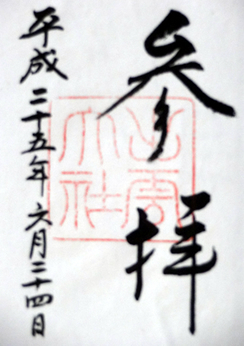 参拝
出雲大社
平成二十五年六月二十四日